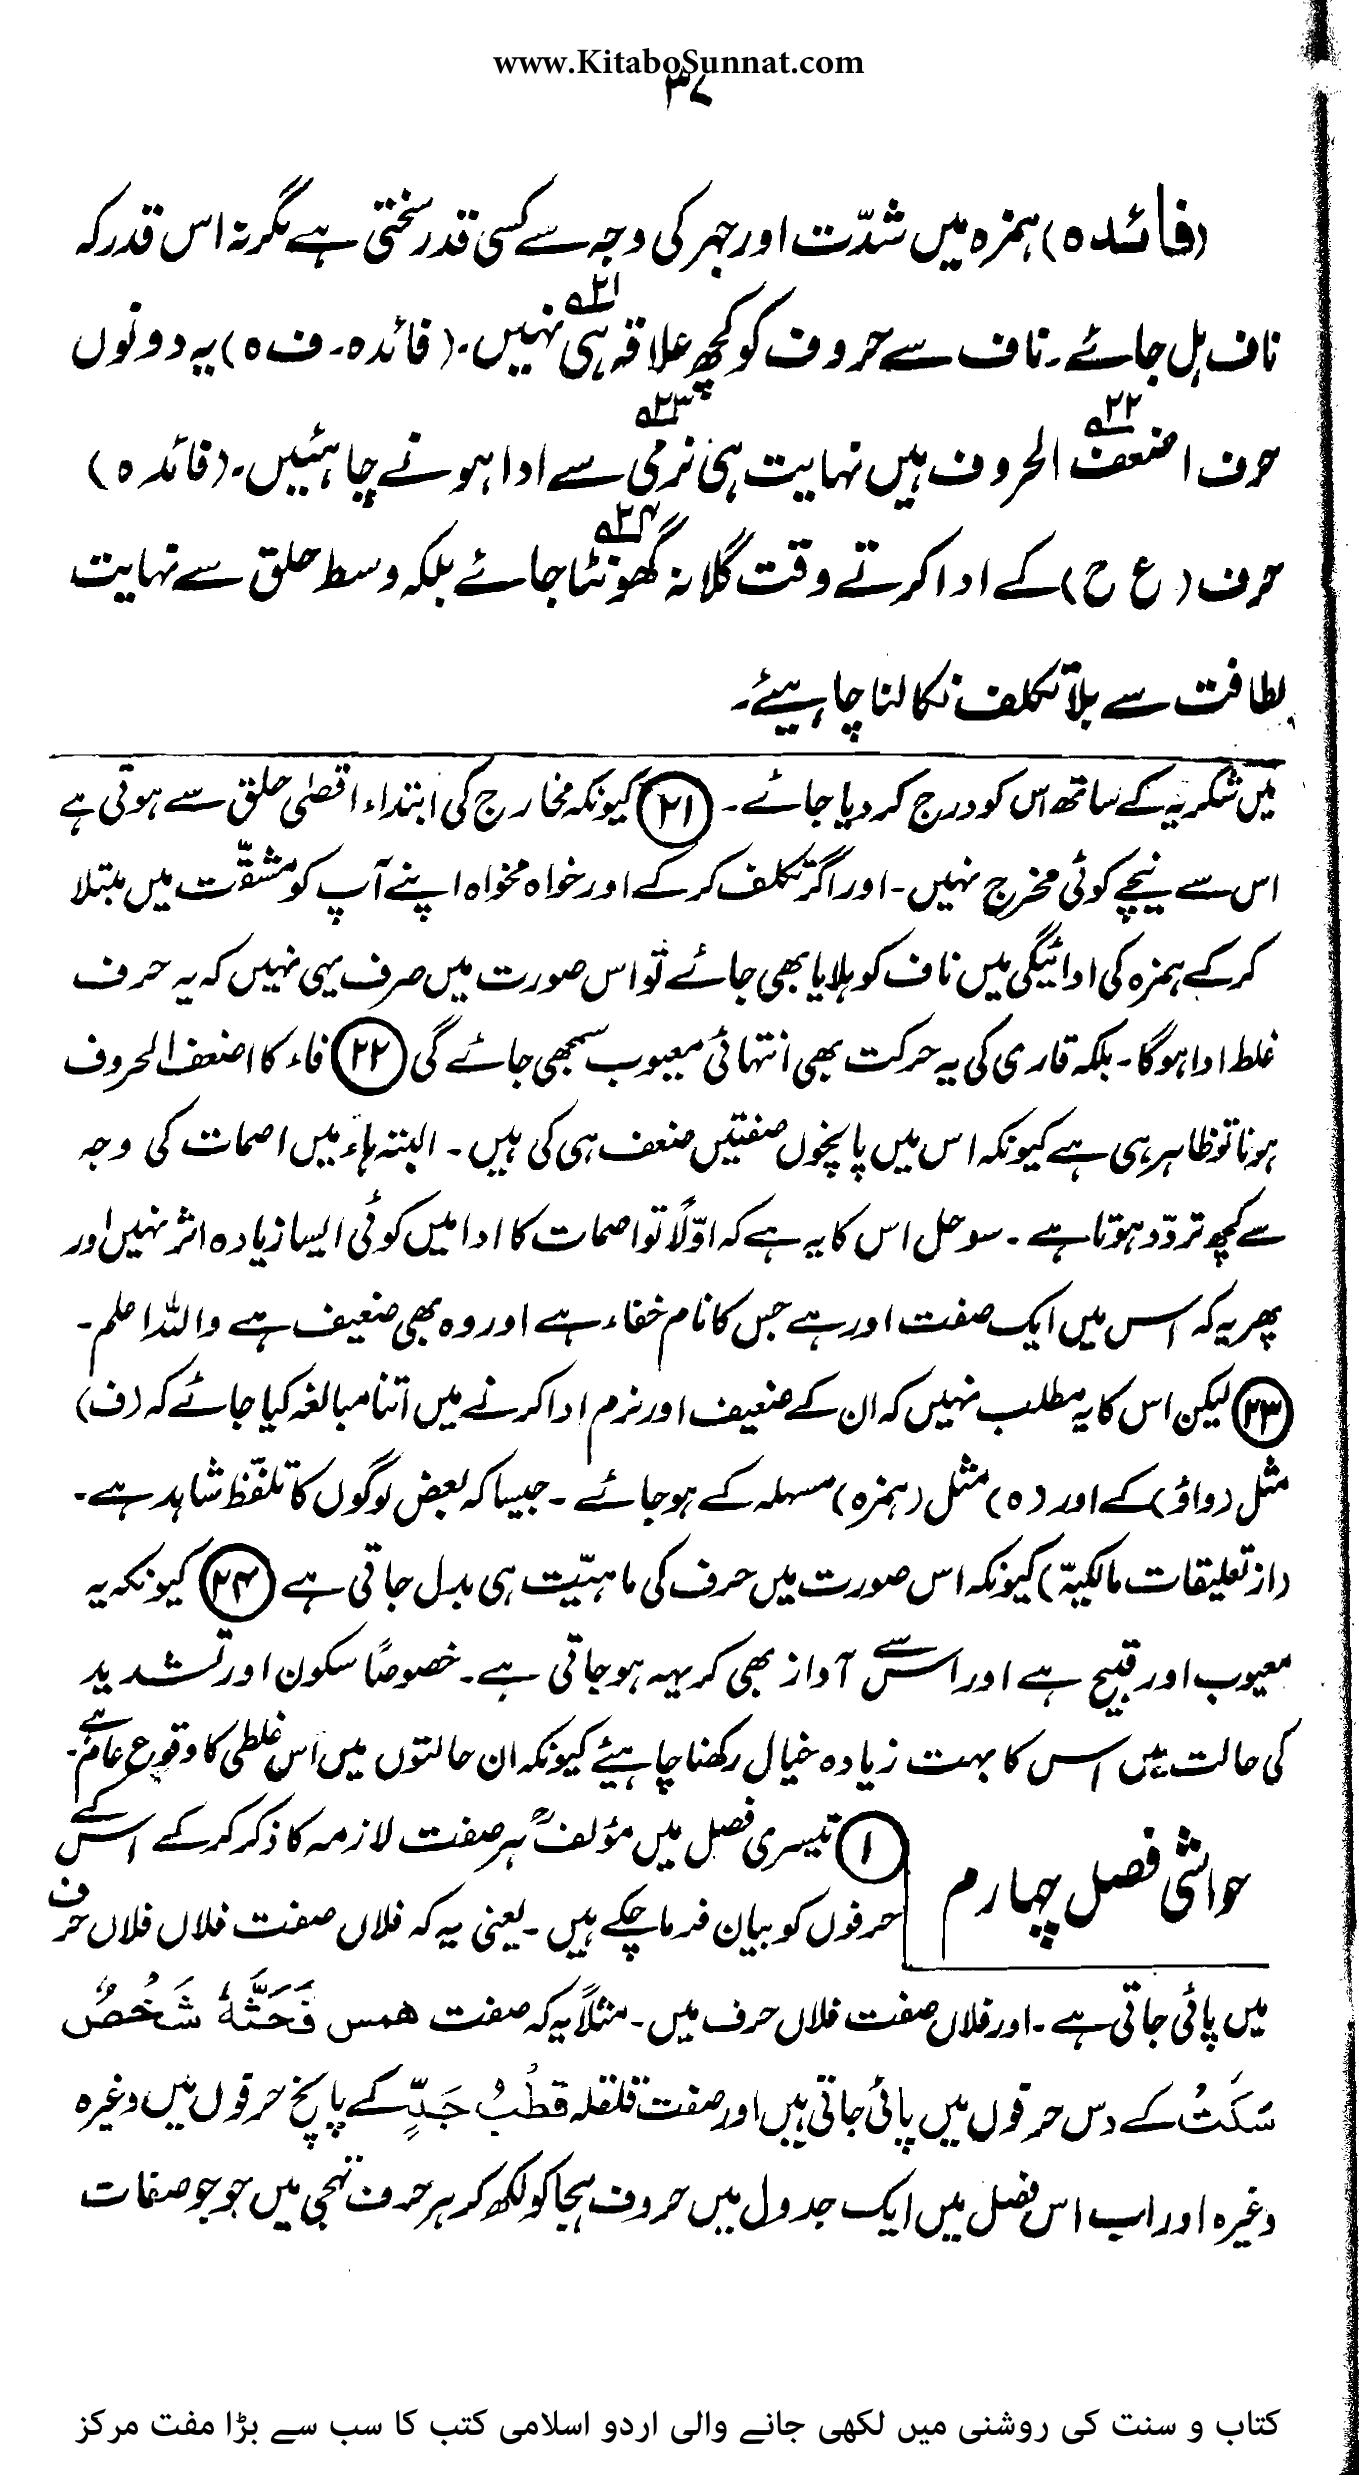 www.KitaboSunnat.com
۳۷
(فائدہ) ہمزہ میں شدّت اور جہر کی وجہ سے کسی قدر سختی ہے مگر نہ اس قدر کہ
ناف ہل جائے۔ ناف سے حروف کو کچھ علاقہ ہی ۲۱؎ نہیں۔ (فائدہ۔ ف ہ) یہ دونوں
حرف اضعف ۲۲؎ الحروف ہیں نہایت ہی نرمی ۲۳؎ سے ادا ہونے چاہئیں۔ (فائدہ)
حرف (ع ح) کے ادا کرتے وقت گلا نہ گھونٹا ۲۴؎ جائے بلکہ وسط حلق سے نہایت
لطافت سے بلا تکلف نکالنا چاہیئے۔
میں شکریہ کے ساتھ اس کو درج کر دیا جائے۔ (۲۱) کیونکہ مخارج کی ابتداء اقصٰی حلق سے ہوتی ہے
اس سے نیچے کوئی مخرج نہیں۔ اور اگر تکلف کر کے اور خواہ مخواہ اپنے آپ کو مشقّت میں مبتلا
کر کے ہمزہ کی ادائیگی میں ناف کو ہلایا بھی جائے تو اس صورت میں صرف یہی نہیں کہ یہ حرف
غلط ادا ہوگا۔ بلکہ قاری کی یہ حرکت بھی انتہائی معیوب سمجھی جائے گی (۲۲) فاء کا اضعف الحروف
ہونا تو ظاہر ہی ہے کیونکہ اس میں پانچوں صفتیں ضعف ہی کی ہیں۔ البتہ ہاء میں اصمات کی وجہ
سے کچھ تردّد ہوتا ہے۔ سو حل اس کا یہ ہے کہ اوّلاً تو اصمات کا ادا میں کوئی ایسا زیادہ اثر نہیں اور
پھر یہ کہ اس میں ایک صفت اور ہے جس کا نام خفاء ہے اور وہ بھی ضعیف ہے واللہ اعلم۔
(۲۳) لیکن اس کا یہ مطلب نہیں کہ ان کے ضعیف اور نرم ادا کرنے میں اتنا مبالغہ کیا جائے کہ (ف)
مثل (واؤ) کے اور (ہ) مثل (ہمزہ) مسہلہ کے ہو جائے۔ جیسا کہ بعض لوگوں کا تلفّظ شاہد ہے۔
(از تعلیقات مالکیہّ) کیونکہ اس صورت میں حرف کی ماہیّت ہی بدل جاتی ہے (۲۴) کیونکہ یہ
معیوب اور قبیح ہے اور اس سے آواز بھی کریہہ ہو جاتی ہے۔ خصوصاً سکون اور تشدید
کی حالت میں اس کا بہت زیادہ خیال رکھنا چاہیئے کیونکہ ان حالتوں میں اس غلطی کا وقوع عام ہے۔
حواشی فصل چہارم
(۱) تیسری فصل میں مؤلفؒ ہر صفت لازمہ کا ذکر کر کے اس کے
حرفوں کو بیان فرما چکے ہیں۔ یعنی یہ کہ فلاں صفت فلاں فلاں حرف
میں پائی جاتی ہے۔ اور فلاں صفت فلاں حرف میں۔ مثلاً یہ کہ صفت ھمس فَحَثَّہٗ شَخْصٌ
سَکَتُ کے دس حرفوں میں پائی جاتی ہیں اور صفت قلقلہ قُطُبُ جَدٍّ کے پانچ حرفوں میں وغیرہ
وغیرہ اور اب اس فصل میں ایک جدول میں حروف ہجا کو لکھ کر ہر حرف تہجی میں جو جو صفات
کتاب و سنت کی روشنی میں لکھی جانے والی اردو اسلامی کتب کا سب سے بڑا مفت مرکز